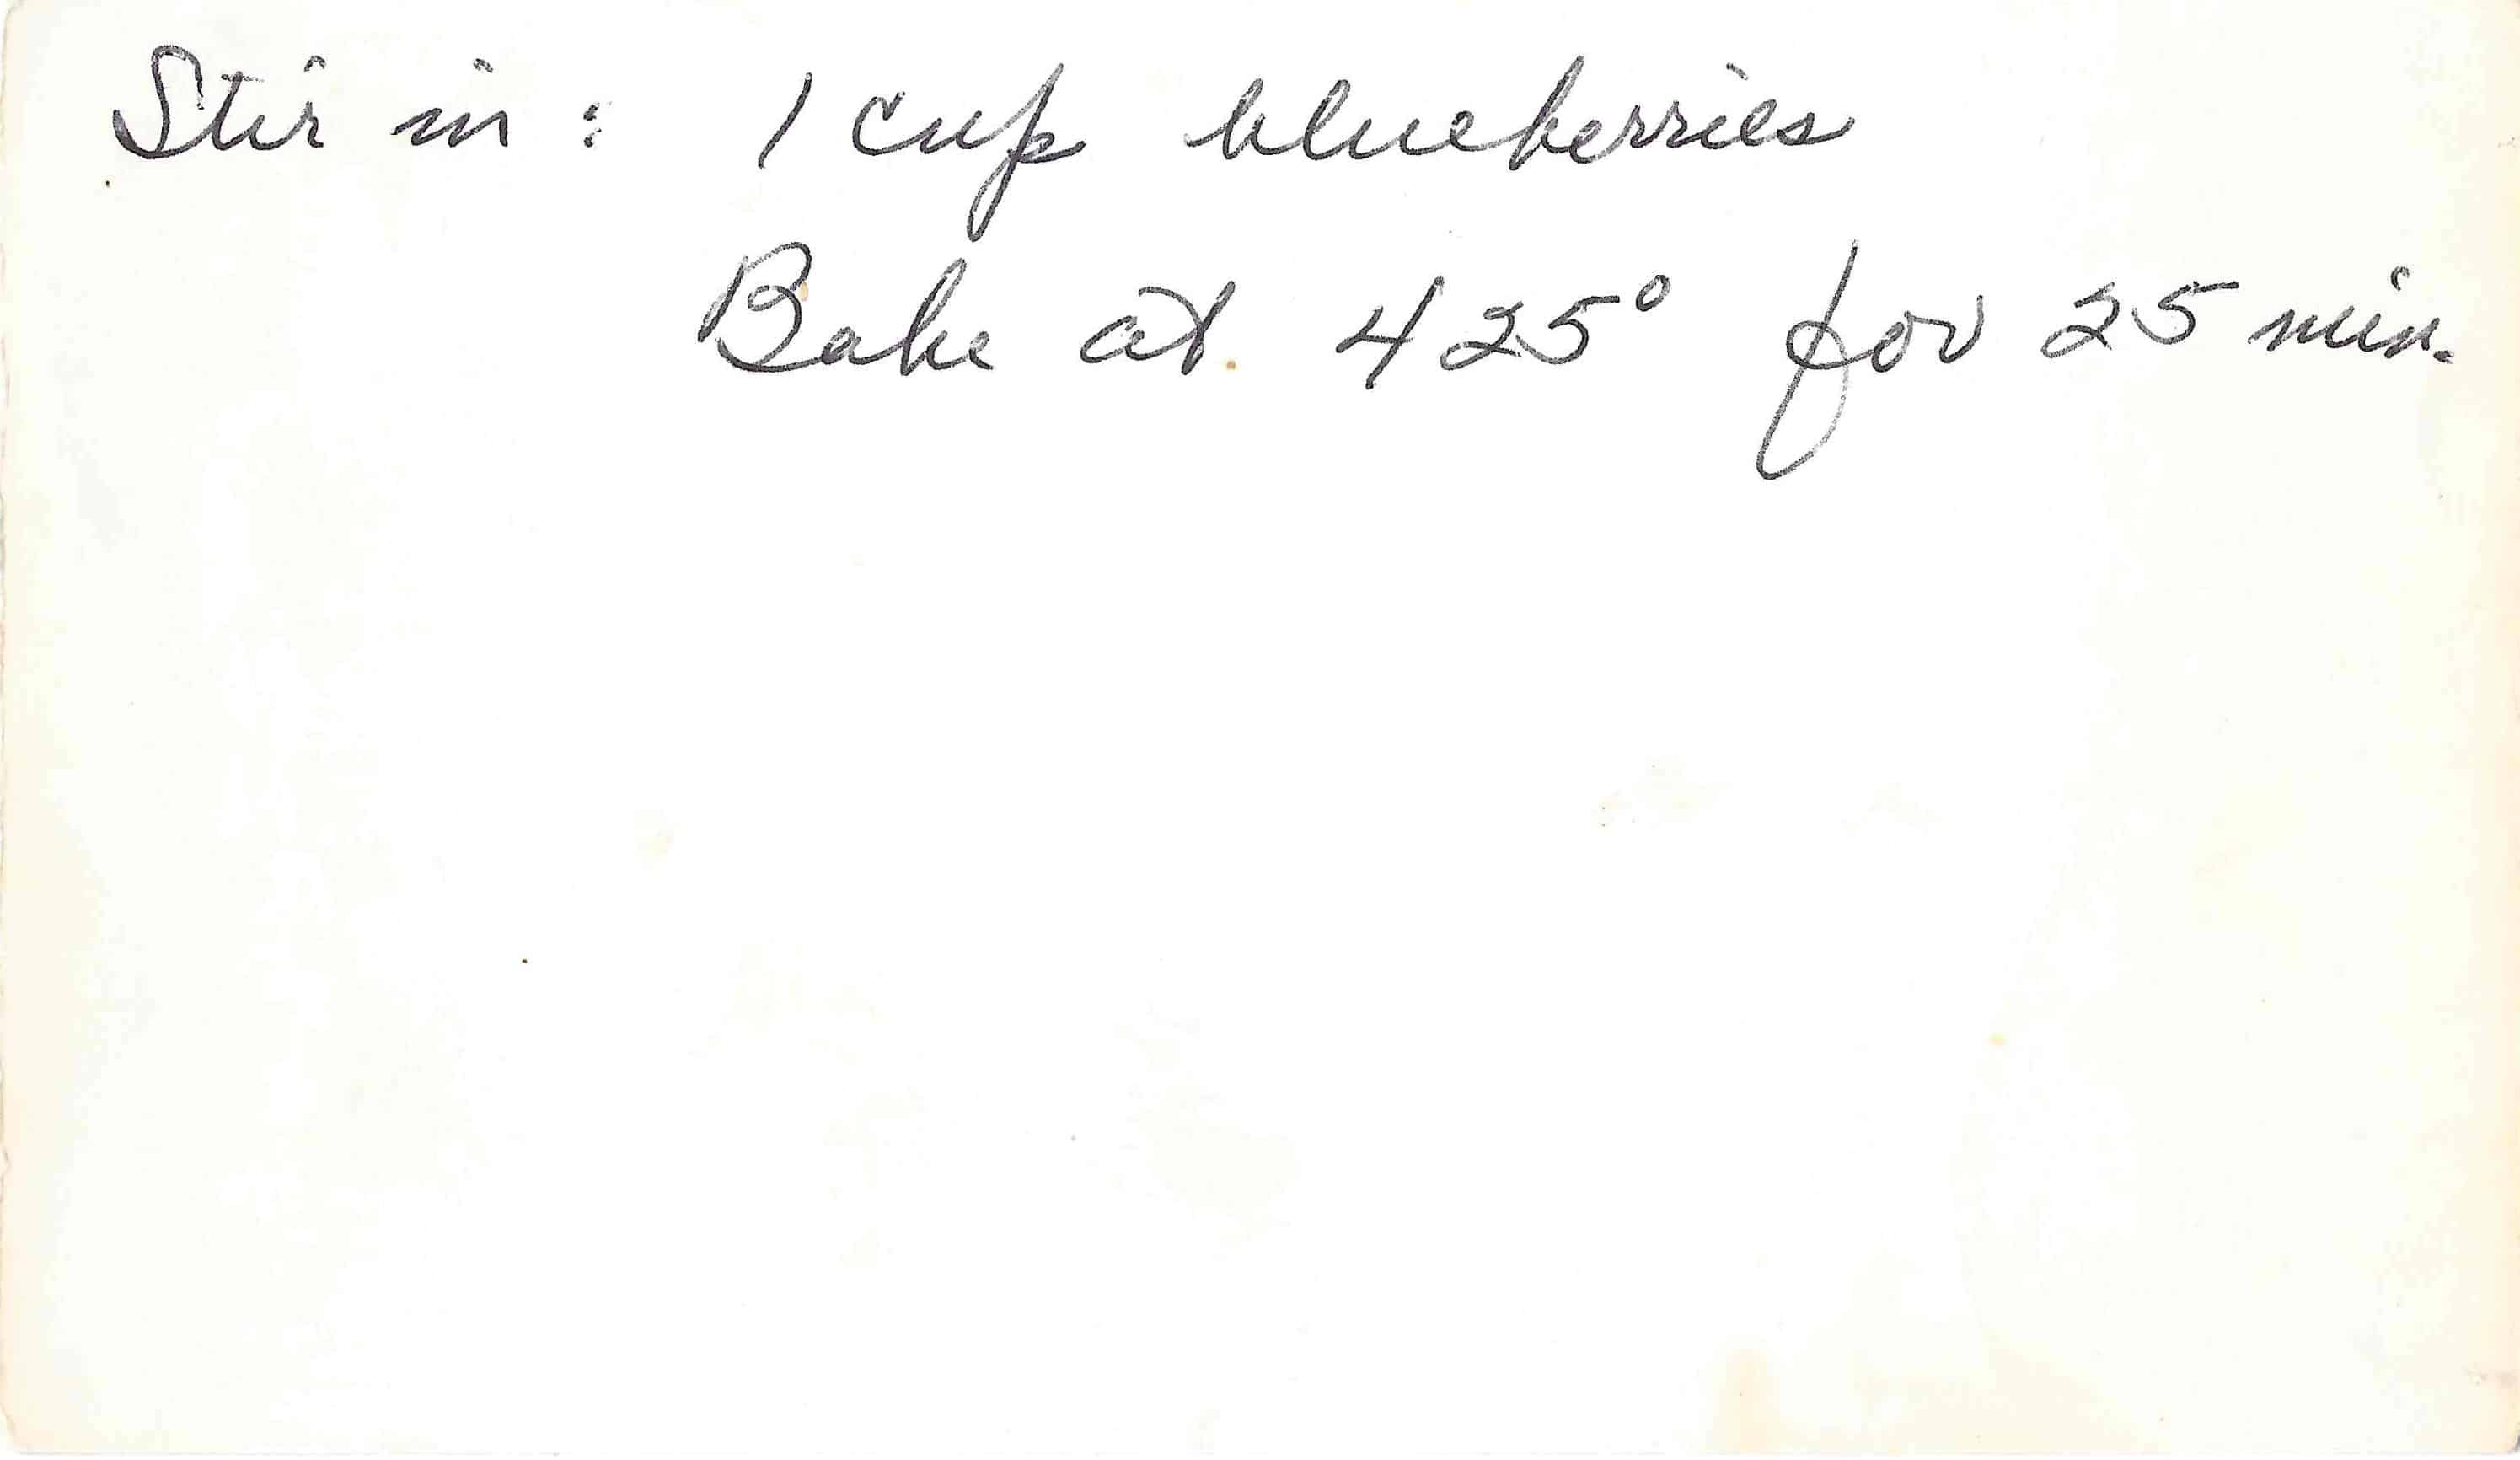 Stir in : 1 cup blueberries
Bake at 425° for 25 min.